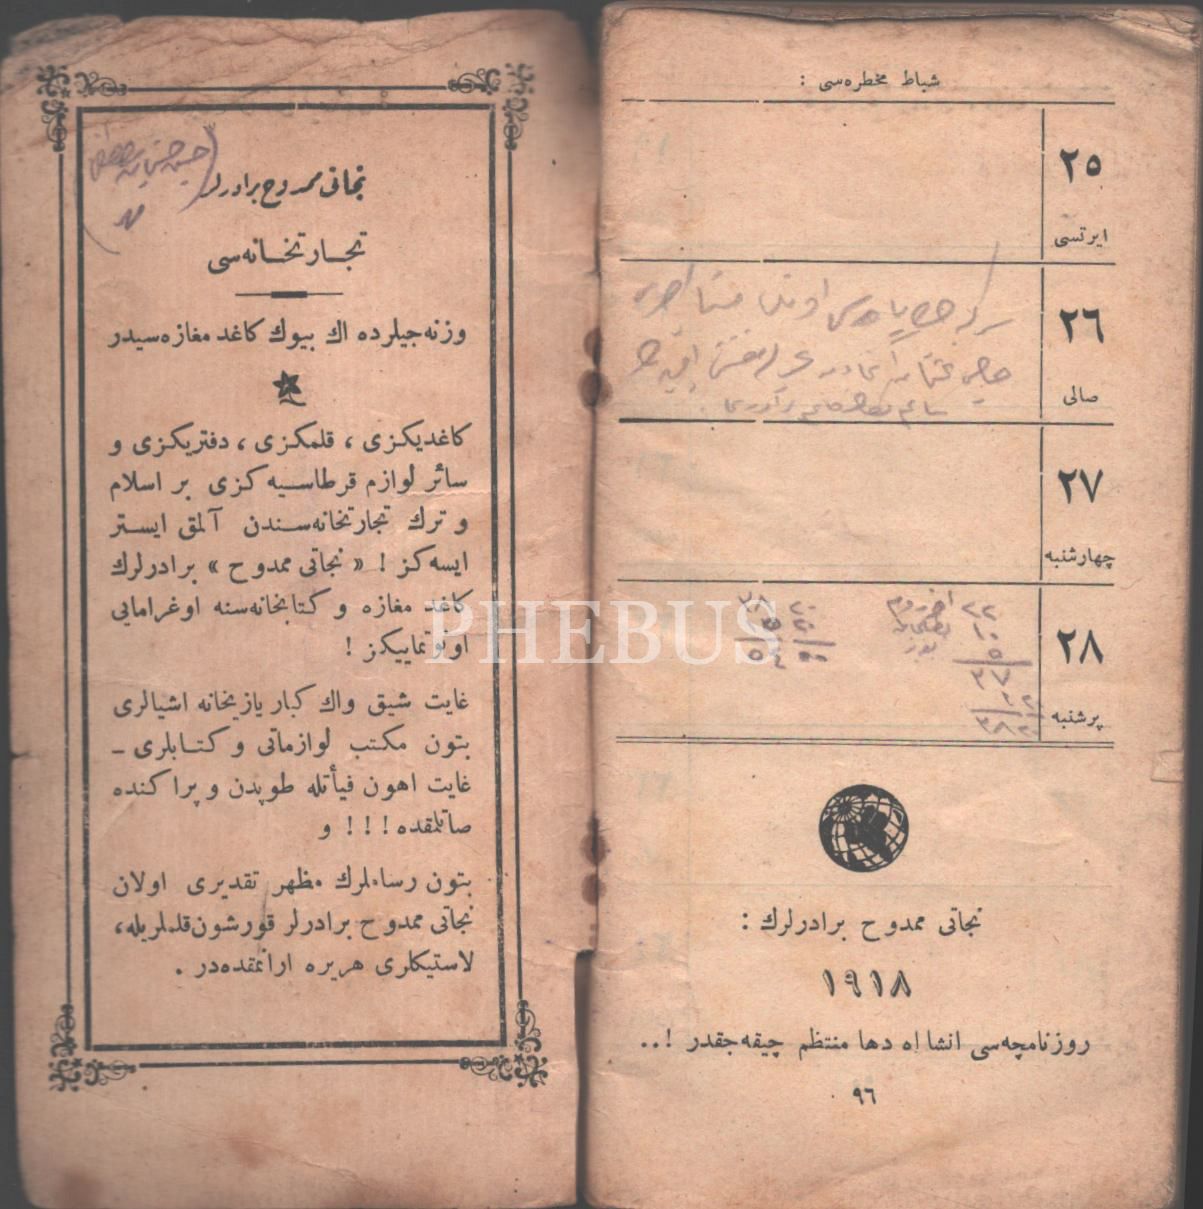 شباط مخطره‌سی :
٢٥
ایرتسی
٢٦
صالی
٢٧
چهارشنبه
٢٨
پرشنبه
نجاتی ممدوح برادرلرك :
١٩١٨
روزنامچه‌سی انشااه دها منتظم چیقه‌جقدر !..
٩٦
نجاتی ممدوح برادرلر
تجارتخانه‌سی
وزنه‌جیلرده اك بیوك كاغد مغازه‌سیدر
كاغدیكزی ، قلمكزی ، دفتریكزی و
سائر لوازم قرطاسیه‌كزی بر اسلام
و ترك تجارتخانه‌سندن آلمق ایستر
ایسه‌كز ! « نجاتی ممدوح » برادرلرك
كاغد مغازه و كتابخانه‌سنه اوغرامایی
اونوتماییكز !
غایت شیق واك كبار یازیخانه اشیالری
بتون مكتب لوازماتی و كتابلری ـ
غایت اهون فیأتله طوپدن و پراكنده
صاتلمقده ! ! ! و
بتون رساملرك مظهر تقدیری اولان
نجاتی ممدوح برادرلر قورشون‌قلملریله،
لاستیكلری هریره ارانمقده‌در .
PHEBUS